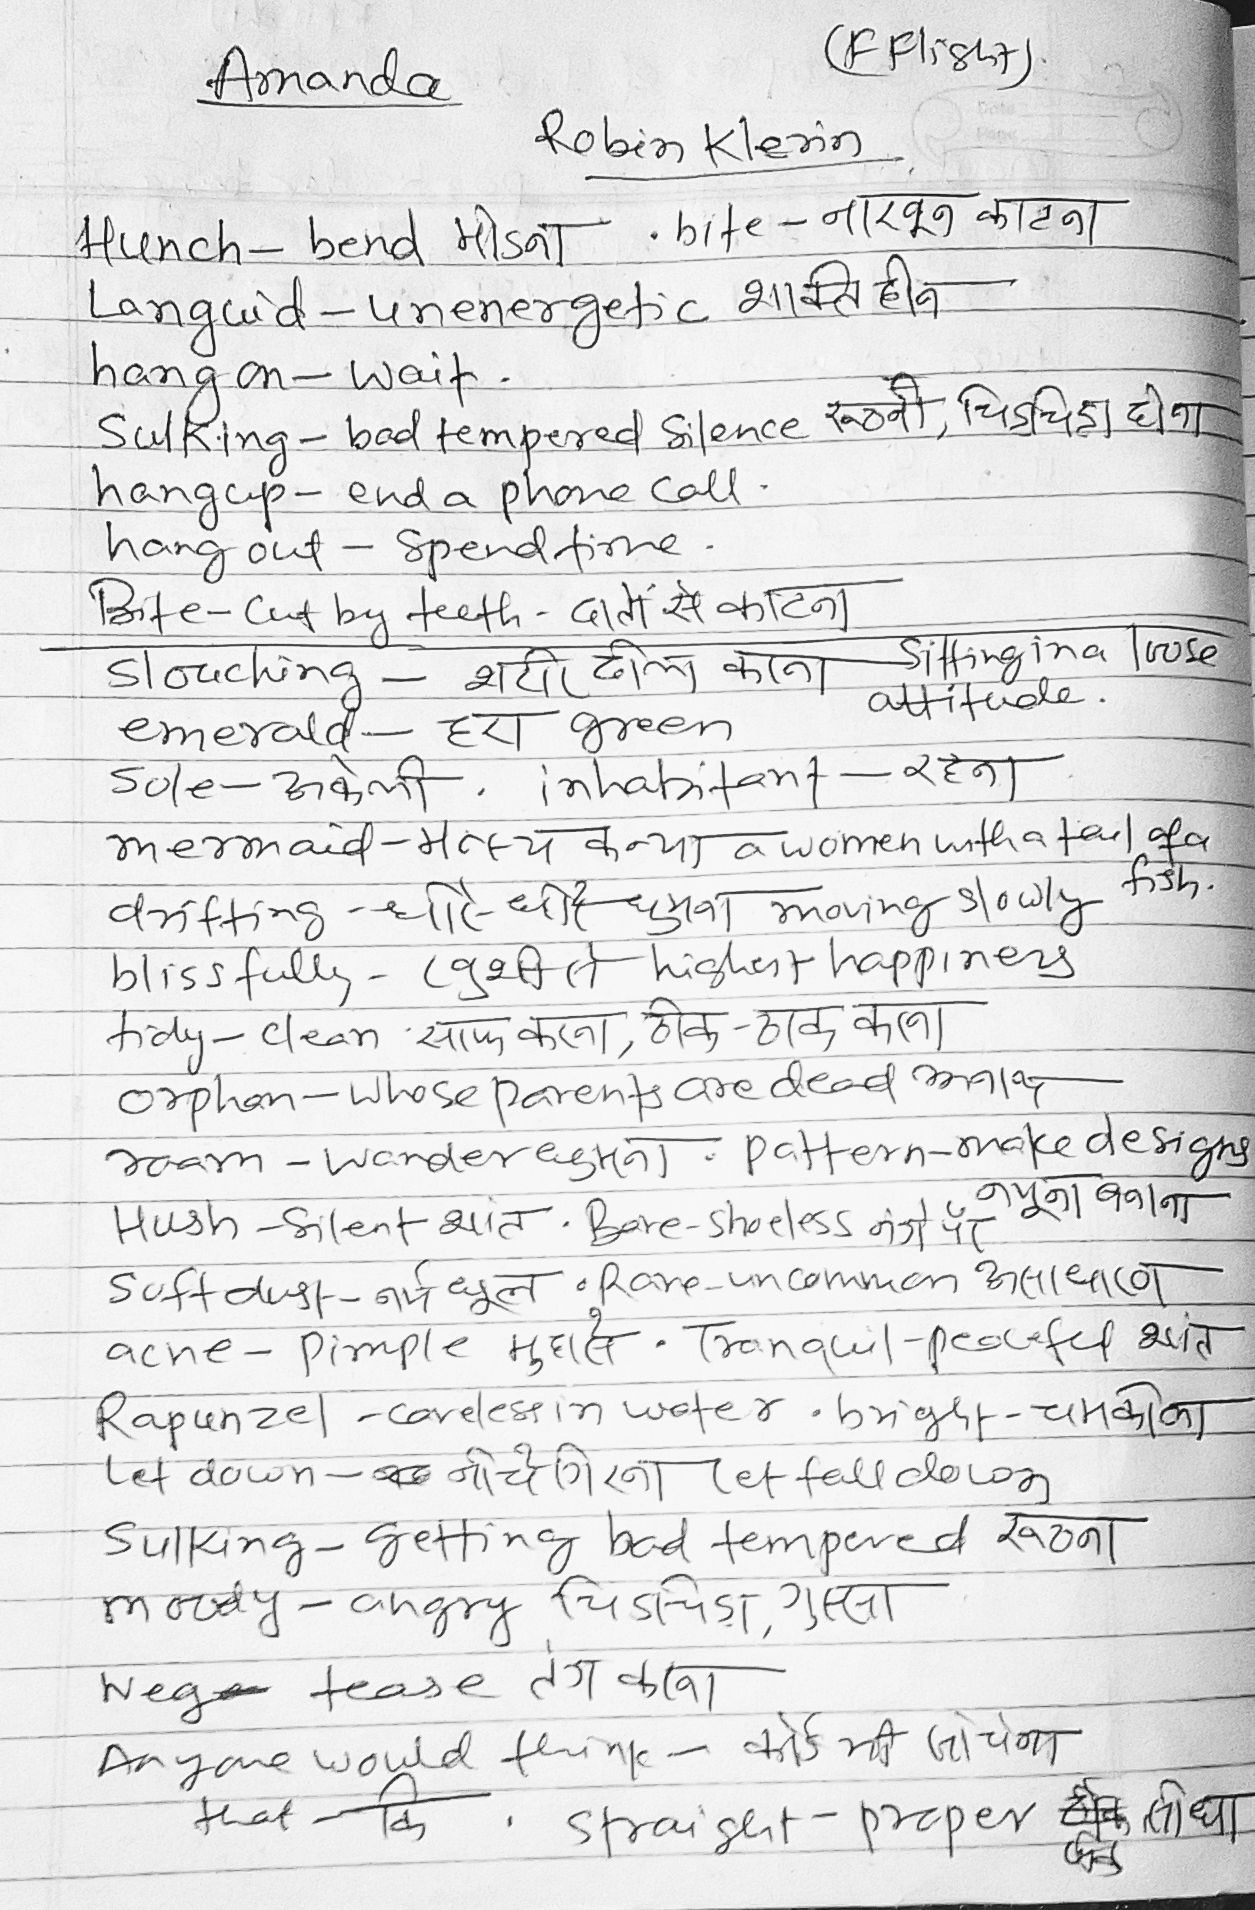 (F Flight)
Amanda
Robin Klerin
Hunch – bend मोडना . bite – नाखून काटना
Languid – unenergetic शक्ति हीन
hang on – wait.
Sulking – bad tempered silence रूठनी, चिडचिडा होना
hangup – end a phone call.
hang out – Spend time.
Bite – Cut by teeth - दातों से काटना
Slouching – शरीर ढीला करना Sitting in a loose
attitude.
emerald – हरा green
Sole – अकेली . inhabitant – रहना
mermaid – मत्स्य कन्या a women with a tail of a
fish.
drifting - धीरे धीरे घुमना moving slowly
blissfully - खुशी से highest happiness
tidy – clean साफ करना, ठीक-ठाक करना
orphan – whose parents are dead अनाथ
roam – wander घुमना . pattern – make designs
नमूना बनाना
Hush – Silent शांत . Bare – shoeless नंगे पैर
Soft dust – नर्म धूल . Rare – uncommon असाधारण
acne – Pimple मुहासे . Tranquil – peaceful शांत
Rapunzel – careless in water . bright – चमकीला
Let down – नीचे गिरना let fall down
Sulking – getting bad tempered रूठना
moody – angry चिडचिडा, गुस्सा
Neg tease तंग करना
Anyone would think – कोई भी सोचेगा
that – कि . straight – proper सीधा